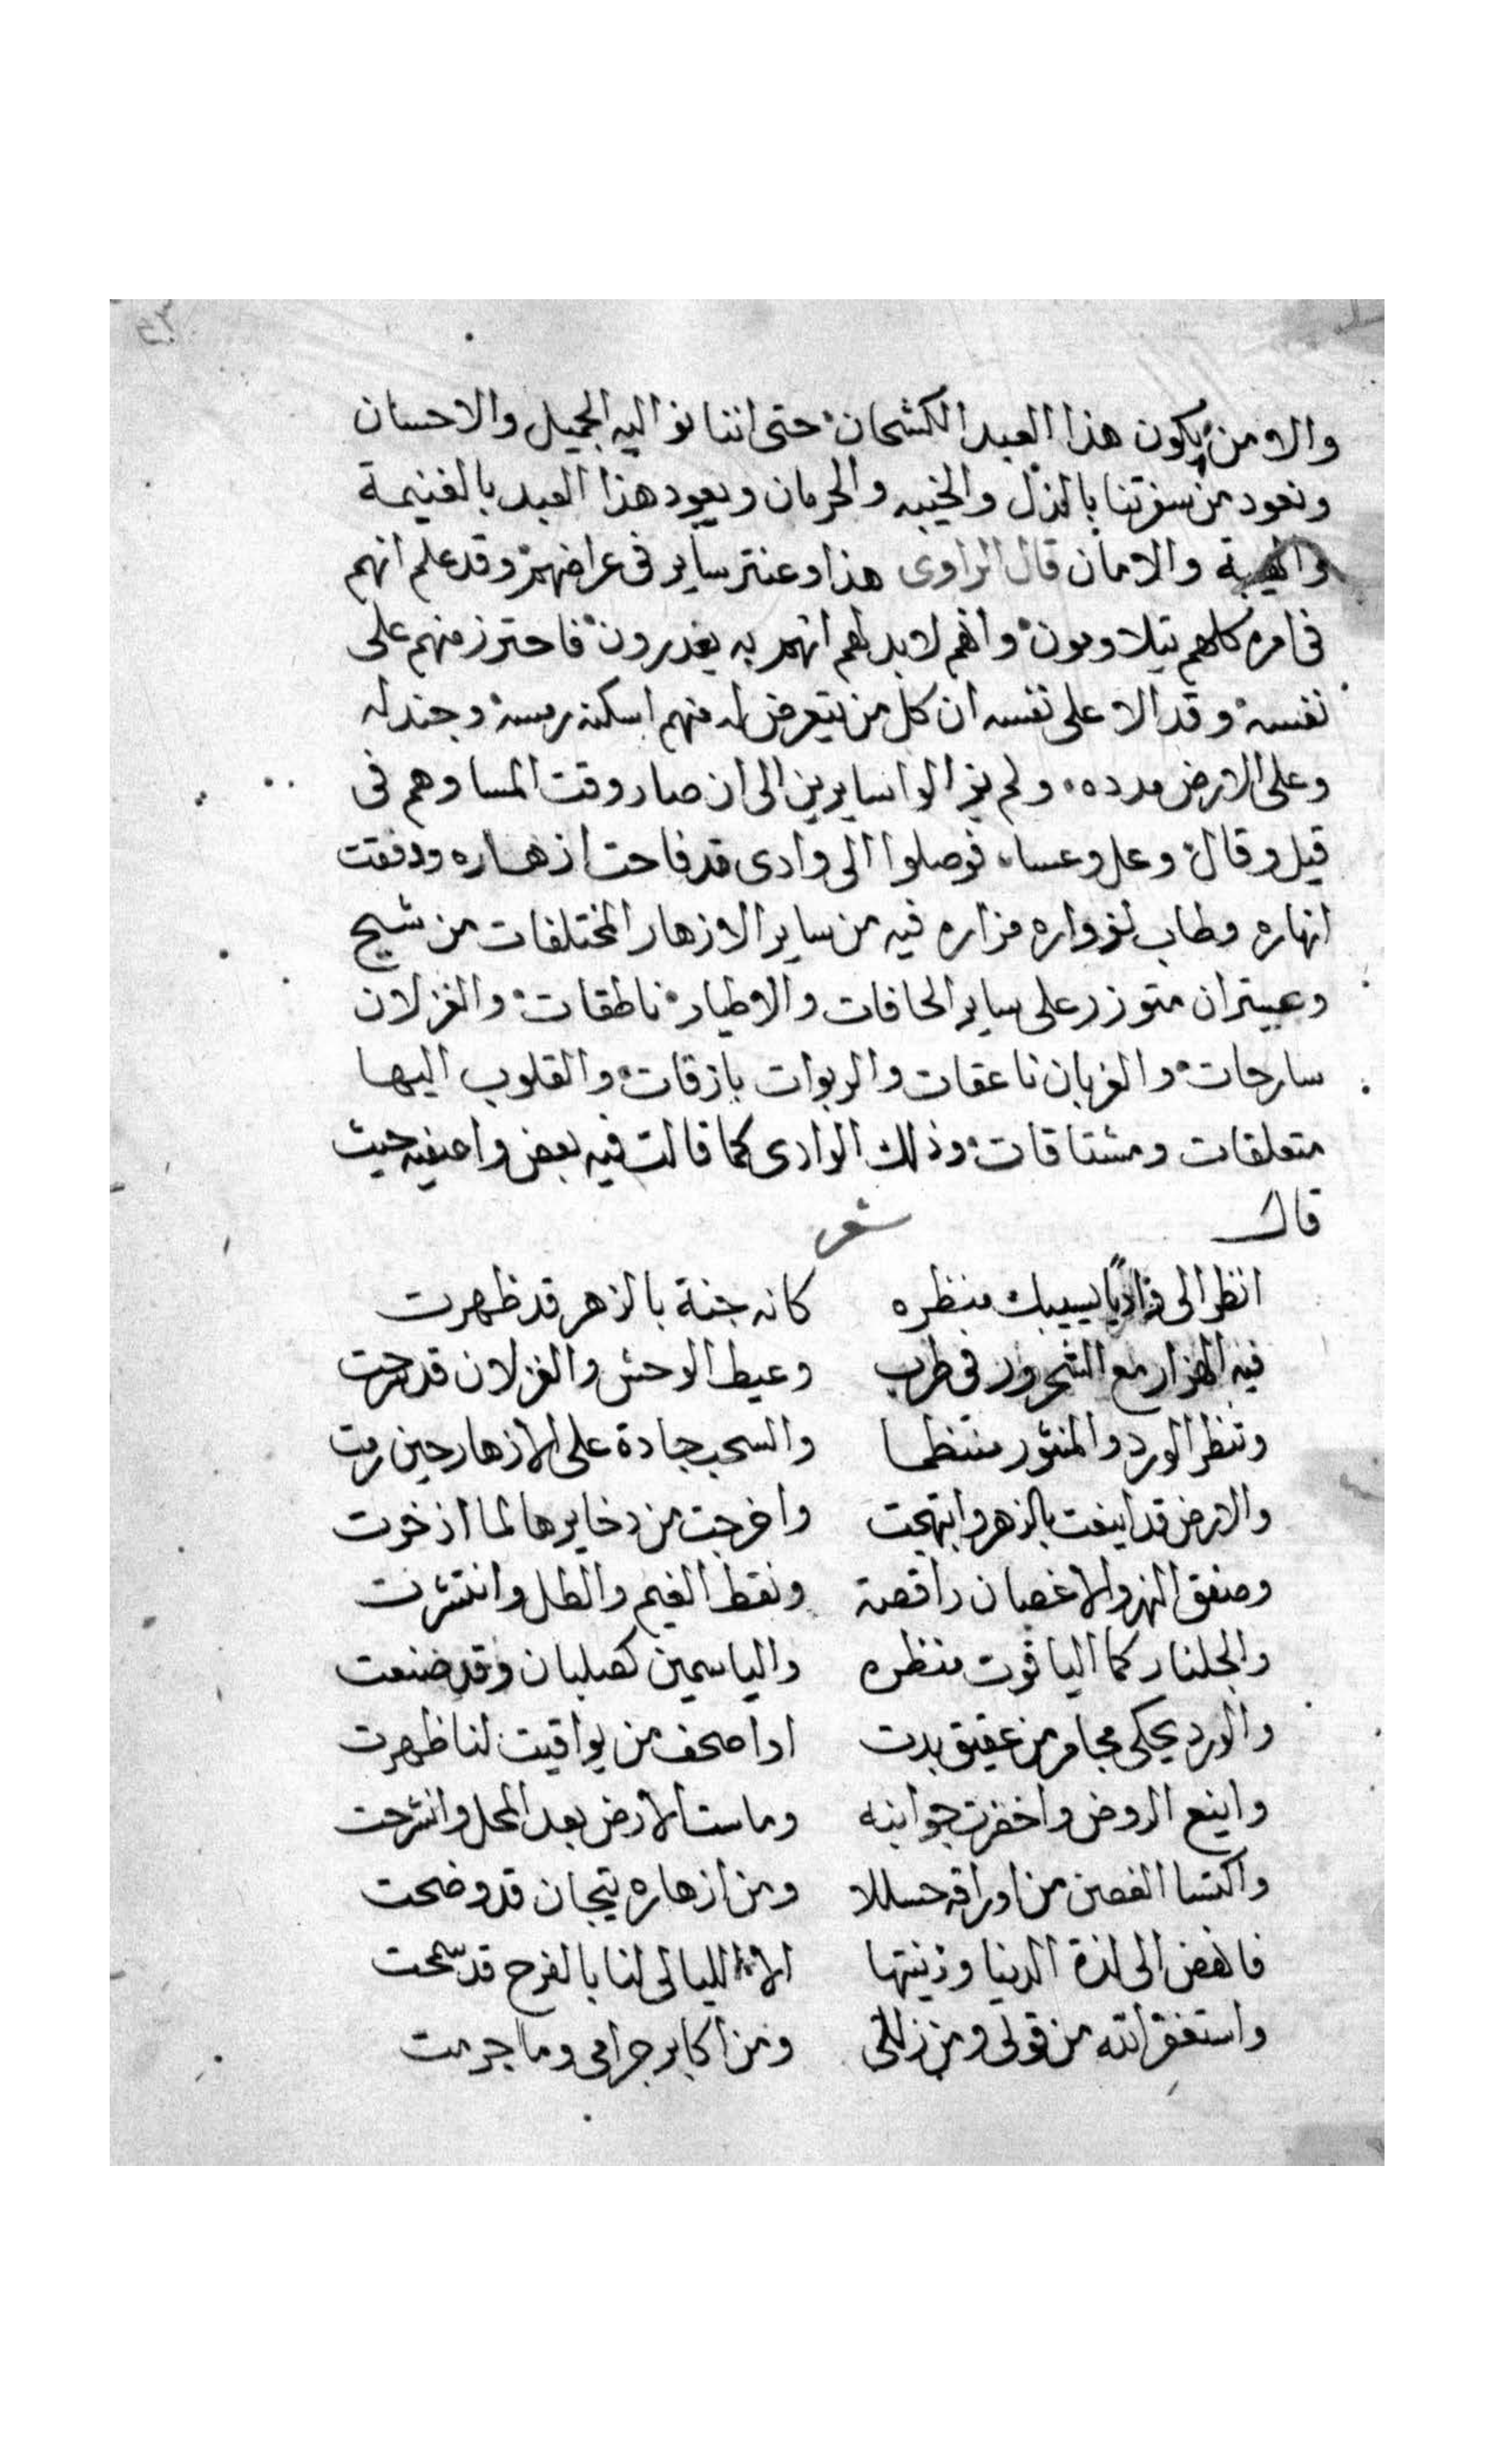 والا من يكون هذا العبد الكشحان حتى اننا نواليه الجميل والاحسان
ونعود من سفرتنا بالذل والخيبه والحرمان ويعود هذا العبد بالغنيمة
والهيبة والامان قال الراوى هذا وعنتر ساير فى عراضهم وقد علم انهم
فى امره كلهم يتلاومون وانهم لابد لهم انهم به يغدرون فاحترز منهم على
نفسه وقد الا على نفسه ان كل من يتعرض له منهم اسكنه رمسه وجندله
وعلى الارض مدده ولم يزالوا سايرين الى ان صار وقت المسا وهم فى
قيل وقال وعل وعسا فوصلوا الى وادى قد فاحت ازهاره ودفقت
انهاره وطاب لزواره مزاره فيه من ساير الازهار المختلفات من شيح
وعبيتران متوزر على ساير الحافات والاطيار ناطقات والغزلان
سارحات والغربان ناعقات والربوات بازقات والقلوب اليها
متعلقات ومشتاقات وذلك الوادى كما قالت فيه بعض واصفيه حيث
قال شعر
انظر الى واديًا يسيبك منظره كانه جنة بالزهر قد ظهرت
فيه الهزار مع الشحرور فى طرب وعيط الوحش والغزلان قد مرحت
وتنظر الورد والمنثور منتظما والسحب جادة على الازهار حين رمت
والارض قد اينعت بالزهر وابتهجت واخرجت من دخايرها لما اذخرت
وصفق النهر والاغصان راقصة ونقط الغيم والطل وانتشرت
والجلنار كما الياقوت منظره والياسمين كصلبان وقد صنعت
والورد يحكى مجامر من عقيق بدت اوا صحف من يواقيت لنا ظهرت
واينع الروض واخضرت جوانبه وماست الارض بعد المحل وانشرحت
واكتسا الغصن من اوراقه حسللا ومن ازهاره تيجان قد وضحت
فانهض الى لذة الدنيا وزينتها الا الليالى لنا بالفرح قد سمحت
واستغفر الله من قولى ومن زللى ومن اكابر جرامى وما جرمت